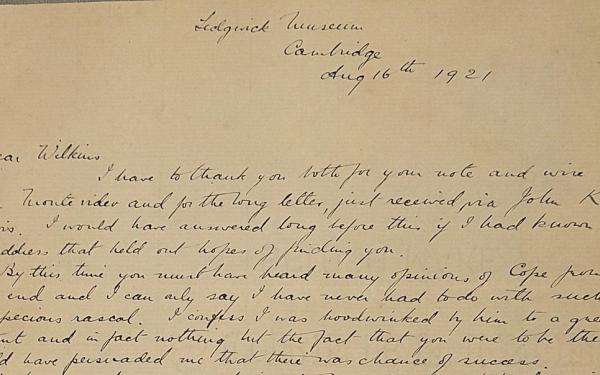 Sedgwick Museum
Cambridge
Aug 16th 1921
ear Wilkins
I have to thank you both for your note and wire
Montevideo and for the long letter, just received, via John K
is. I would have answered long before this if I had known
ddress that held out hopes of finding you.
By this time you must have heard many opinions of Cope from
end and I can only say I have never had to do with such
pecious rascal. I confess I was hoodwinked by him to a grea
nt and in fact nothing but the fact that you were to be the
ld have persuaded me that there was chance of success.